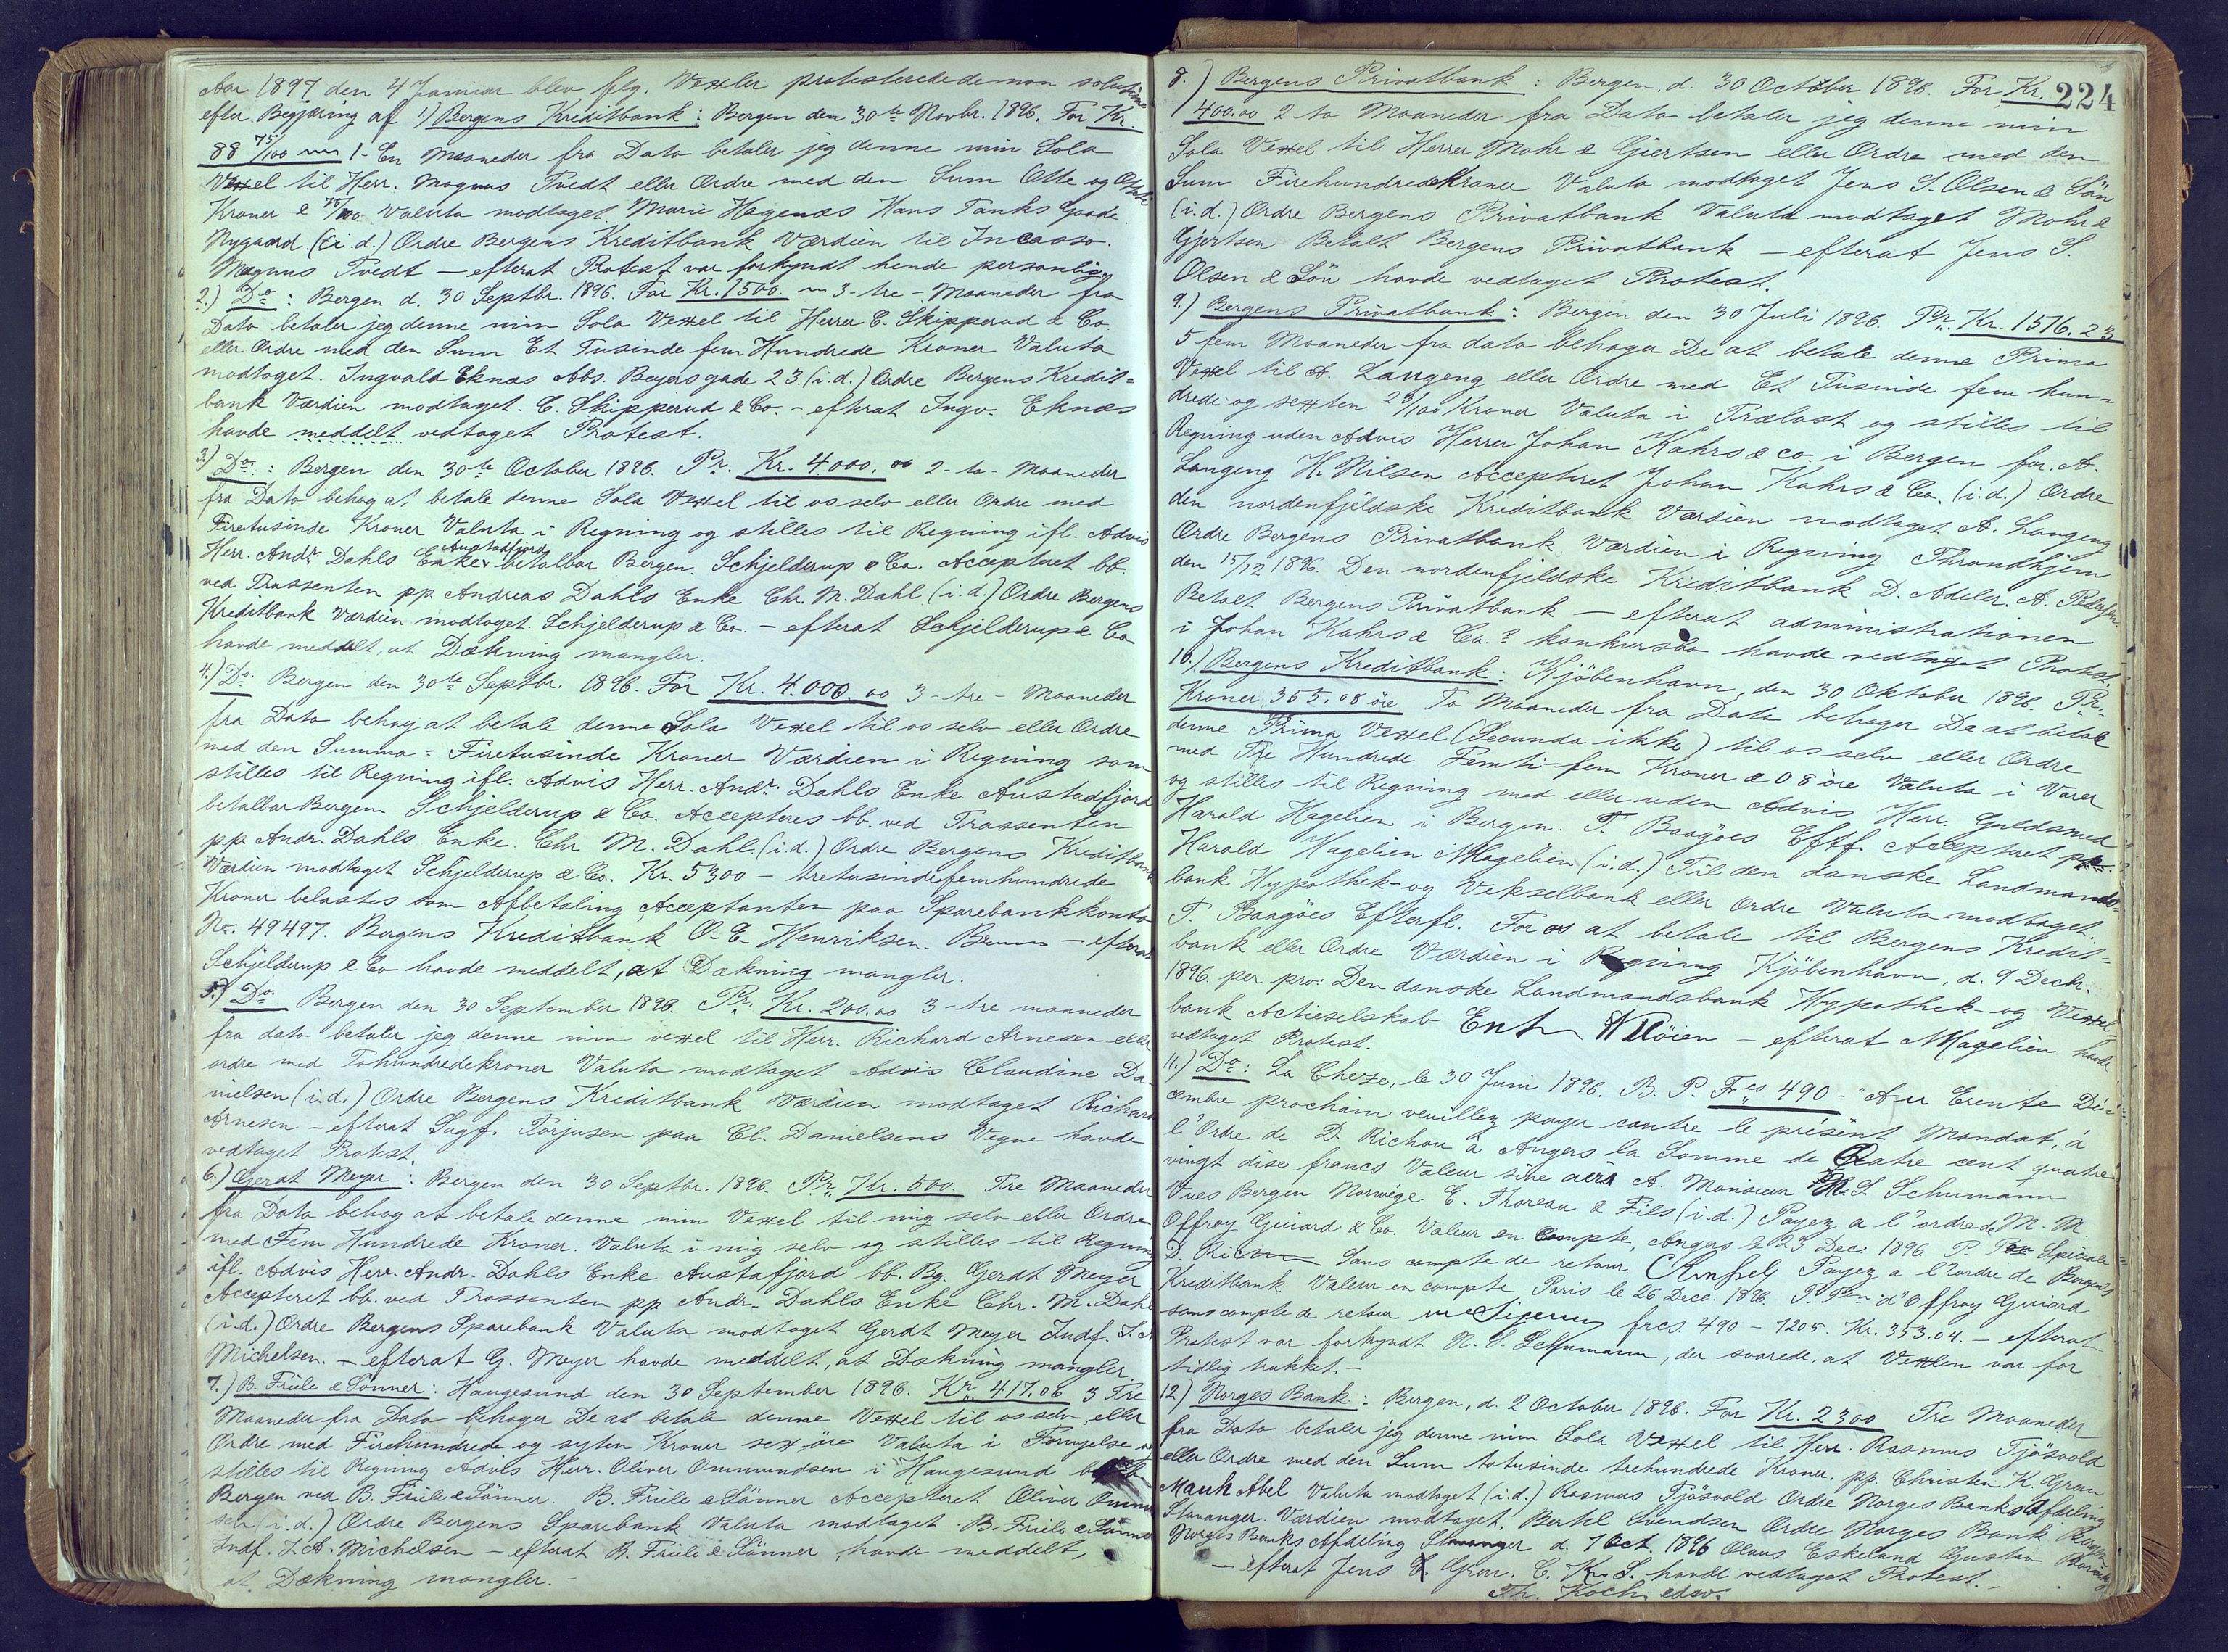 Aar 1897 den 4 Januar blev flg. Vexler protesterede demon solution
efter Begjæring af 1) Bergens Kreditbank: Bergen den 30te Novbr. 1896. For Kr.
88 75/100 1- En Maaneder fra Dato betaler jeg denne min Sola
Vexel til Herr. Magnus Tvedt eller Ordre med den Sum Otte og Otteti
Kroner & 75/100 Valuta modtaget. Marie Hagenæs Hans Tanks Gaade
Nygaard. (i.d.) Ordre Bergens Kreditbank Værdien til Incasso.
Magnus Tvedt – efterat Protest var forkyndt hende personlig.
2.) Do: Bergen d. 30 Septbr. 1896. For Kr. 1500. 3-tre-Maaneder fra
Dato betaler jeg denne min Sola Vexel til Herrer C. Skipperud & Co.
eller Ordre med den Sum Et Tusinde fem Hundrede Kroner Valuta
modtaget. Ingvald Eknæs Abs. Beyers gade 23. (i.d.) Ordre Bergens Kredit=
bank Værdien modtaget. C. Skipperud & Co. – efterat Ingv. Eknæs
havde meddelt vedtaget Protest.
3.) Do: Bergen den 30te October 1896. Pr. Kr. 4000. 00 2-to-Maaneder
fra Dato behag at betale denne Sola Vexel til os selv eller Ordre med
Firetusinde Kroner Valuta i Regning og stilles til Regning ifl. Advis
Herr. Andr. Dahls Enke Austadfjord betalbar Bergen. Schjelderup & Co. Accepteret bb.
ved Trassenten pp Andreas Dahls Enke Chr. M. Dahl (i.d.) Ordre Bergens
Kreditbank Værdien modtaget. Schjelderup & Co. – efterat Schjelderup & Co
havde meddelt, at Dækning mangler.
4.) Do. Bergen den 30te Septbr. 1896. For Kr. 4.000.00 3-tre-Maaneder
fra Dato behag at betale denne Sola Vexel til os selv eller Ordre
med den Summa = Firetusinde Kroner Værdien i Regning som
stilles til Regning ifl. Advis Herr. Andr. Dahls Enke Austadfjord
betalbar Bergen. Schjelderup & Co. Accepteres bb. ved Trassenten
pp. Andr. Dahls Enke. Chr M. Dahl. (i.d.) Ordre Bergens Kreditbank
Værdien modtaget Schjelderup & Co. Kr. 5300 – tretusindefemhundrede
Kroner belastes som Afbetaling Acceptanten paa Sparebankkonto
No. 49497. Bergens Kreditbank O. E. Henriksen. – efterat
Schjelderup & Co havde meddelt, at Dækning mangler.
5.) Do Bergen den 30 September 1896. Pr. Kr. 200.00 3-tre maaneder
fra dato betaler jeg denne min vexel til Herr. Richard Arnesen eller
ordre med Tohundredekroner Valuta modtaget Advis Claudine Da-
nielsen (i.d.) Ordre Bergens Kreditbank Værdien modtaget Richard
Arnesen – efterat Sagf. Torjusen paa Cl. Danielsens Vegne havde
vedtaget Protest
6.) Gerdt Meyer: Bergen den 30 Septbr. 1896. Pr. Kr. 500. Tre Maaneder
fra Dato behag at betale denne min Vexel til mig selv eller Ordre
med Fem Hundrede Kroner. Valuta i mig selv og stilles til Regning
ifl. Advis Herr. Andr. Dahls Enke Austafjord bb. Bg. Gerdt Meyer
Accepteret bb. ved Trassenten pp Andr. Dahls Enke Chr. M. Dahl
(i.d.) Ordre Bergens Sparebank Valuta modtaget Gerdt Meyer Indf. J. A
Michelsen. – efterat G. Meyer havde meddelt, at Dækning mangler.
7.) B. Friele & Sönner: Haugesund den 30 September 1896. Kr. 417.06 3 Tre
Maaneder fra Dato behager De at betale denne Vexel til os selv eller
Ordre med Firehundrede og sytten Kroner sex öre Valuta i Fornyelse og
stilles til Regning Advis Herr. Oliver Ommundsen i Haugesund
Bergen ved B. Friele & Sönner. B. Friele & Sönner Accepteret Oliver Ommund
sen (i.d.) Ordre Bergens Sparebank Valuta modtaget. B. Friele & Sönner
Indf. J. A. Michelsen – efterat B. Friele & Sönner havde meddelt,
at Dækning mangler. –
224
8.) Bergens Privatbank: Bergen. d. 30 October 1896. For Kr.
400.00 2 to Maaneder fra Dato betaler jeg denne min
Sola Vexel til Herrer Mohr & Gjertsen eller Ordre med den
Sum Firehundrede Kroner Valuta modtaget Jens S. Olsen & Sön
(i.d.) Ordre Bergens Privatbank Valuta modtaget Mohr &
Gjertsen Betalt Bergens Privatbank – efterat Jens S.
Olsen & Sön havde vedtaget Protest.
9.) Bergens Privatbank: Bergen den 30 Juli 1896. Pr. Kr. 1516.23
5 fem Maaneder fra dato behager De at betale denne Prima
Vexel til A. Langeng eller Ordre med Et Tusinde fem hun=
drede og sexten 23/100 Kroner Valuta i Trælast og stilles til
Regning uden Advis Herrer Johan Kahrs & Co. i Bergen for. A.
Langeng H. Nilsen Accepteret Johan Kahrs & Co. (i.d.) Ordre
den nordenfjeldske Kreditbank Værdien modtaget A. Langeng
Ordre Bergens Privatbank Værdien i Regning Throndhjem
den 15/12 1896. Den nordenfjeldske Kreditbank D. Adeler. A. Pedersen
Betalt Bergens Privatbank – efterat administrationen
i Johan Kahrs & Co.s konkursbo havde vedtaget Protest.
10.) Bergens Kreditbank: Kjöbenhavn, den 30 Oktober 1896. Pr.
Kroner 355.08 öre To Maaneder fra Dato behager De at betale
denne Prima Vexel (Secunda ikke) til os selv eller Ordre
med Tre Hundrede Femti-fem Kroner & 08 öre Valuta i Varer
og stilles til Regning med eller uden Advis Herr. Guldsmed
Harald Hagelien i Bergen. T. Baagöes Eftf. Accepteret
Harald Hagelien MHagelien (i.d.) Til den danske Landmands-
bank Hypothek- og Vekselbank eller Ordre Valuta modtaget.
T. Baagöes Efterfl. For os at betale til Bergens Kredit=
bank eller Ordre Værdien i Regning Kjöbenhavn, d. 9 Decb.
1896. per pro: Den danske Landmandsbank Hypothek- og Vexel-
bank Actieselskab – efterat MHagelien havde
vedtaget Protest.
11.) Do: La Cheze, le 30 Juni 1896. B. P. Frcs 490 - "Au Trente Dé=
cembre prochain veuillez payer contre le présent Mandat, á
l'Ordre de D. Richou á Angers la Somme de Quatre cent quatre
vingt dise francs Valeur A. Monsieur N. S. Schumann
Vues Bergen Norwége. E. Thoreau & Fils (i.d.) Payez a l'ordre de M. M.
Offroy Guiard & Co. Valeur en Compte, Angers le 23 Dec 1896 P.
D. Sans compte de retour Payez a l'ordre de Bergens
Kreditbank Valeur en compte Paris le 26 Dece. 1896. d'Offroy Guiard
sans compte de retour frcs. 490 – 1205. Kr. 353.04. – efterat
Protest var forkyndt N. S. Schumann, der svarede, at Vexlen var for
tidlig trukket. –
12.) Norges Bank: Bergen, d. 2 October 1896. For Kr. 2300 Tre Maaneder
fra Dato betaler jeg denne min Sola Vexel til Herr. Rasmus Tjösvold
eller Ordre med den Sum totusinde trehundrede Kroner. pp. Christen K. Gran
Abel Valuta modtaget (i.d.) Rasmus Tjösvold Ordre Norges Banks Afdeling
Stavanger. Værdien modtaget. Bertel Svendsen Ordre Norges Bank Bergen
Norges Banks Afdeling Stavanger d. 7 Oct. 1896 Olaus Eskeland Gustav
– efterat Jens Gran. C. K. S. havde vedtaget Protest. –
Th. Koch, edsv.